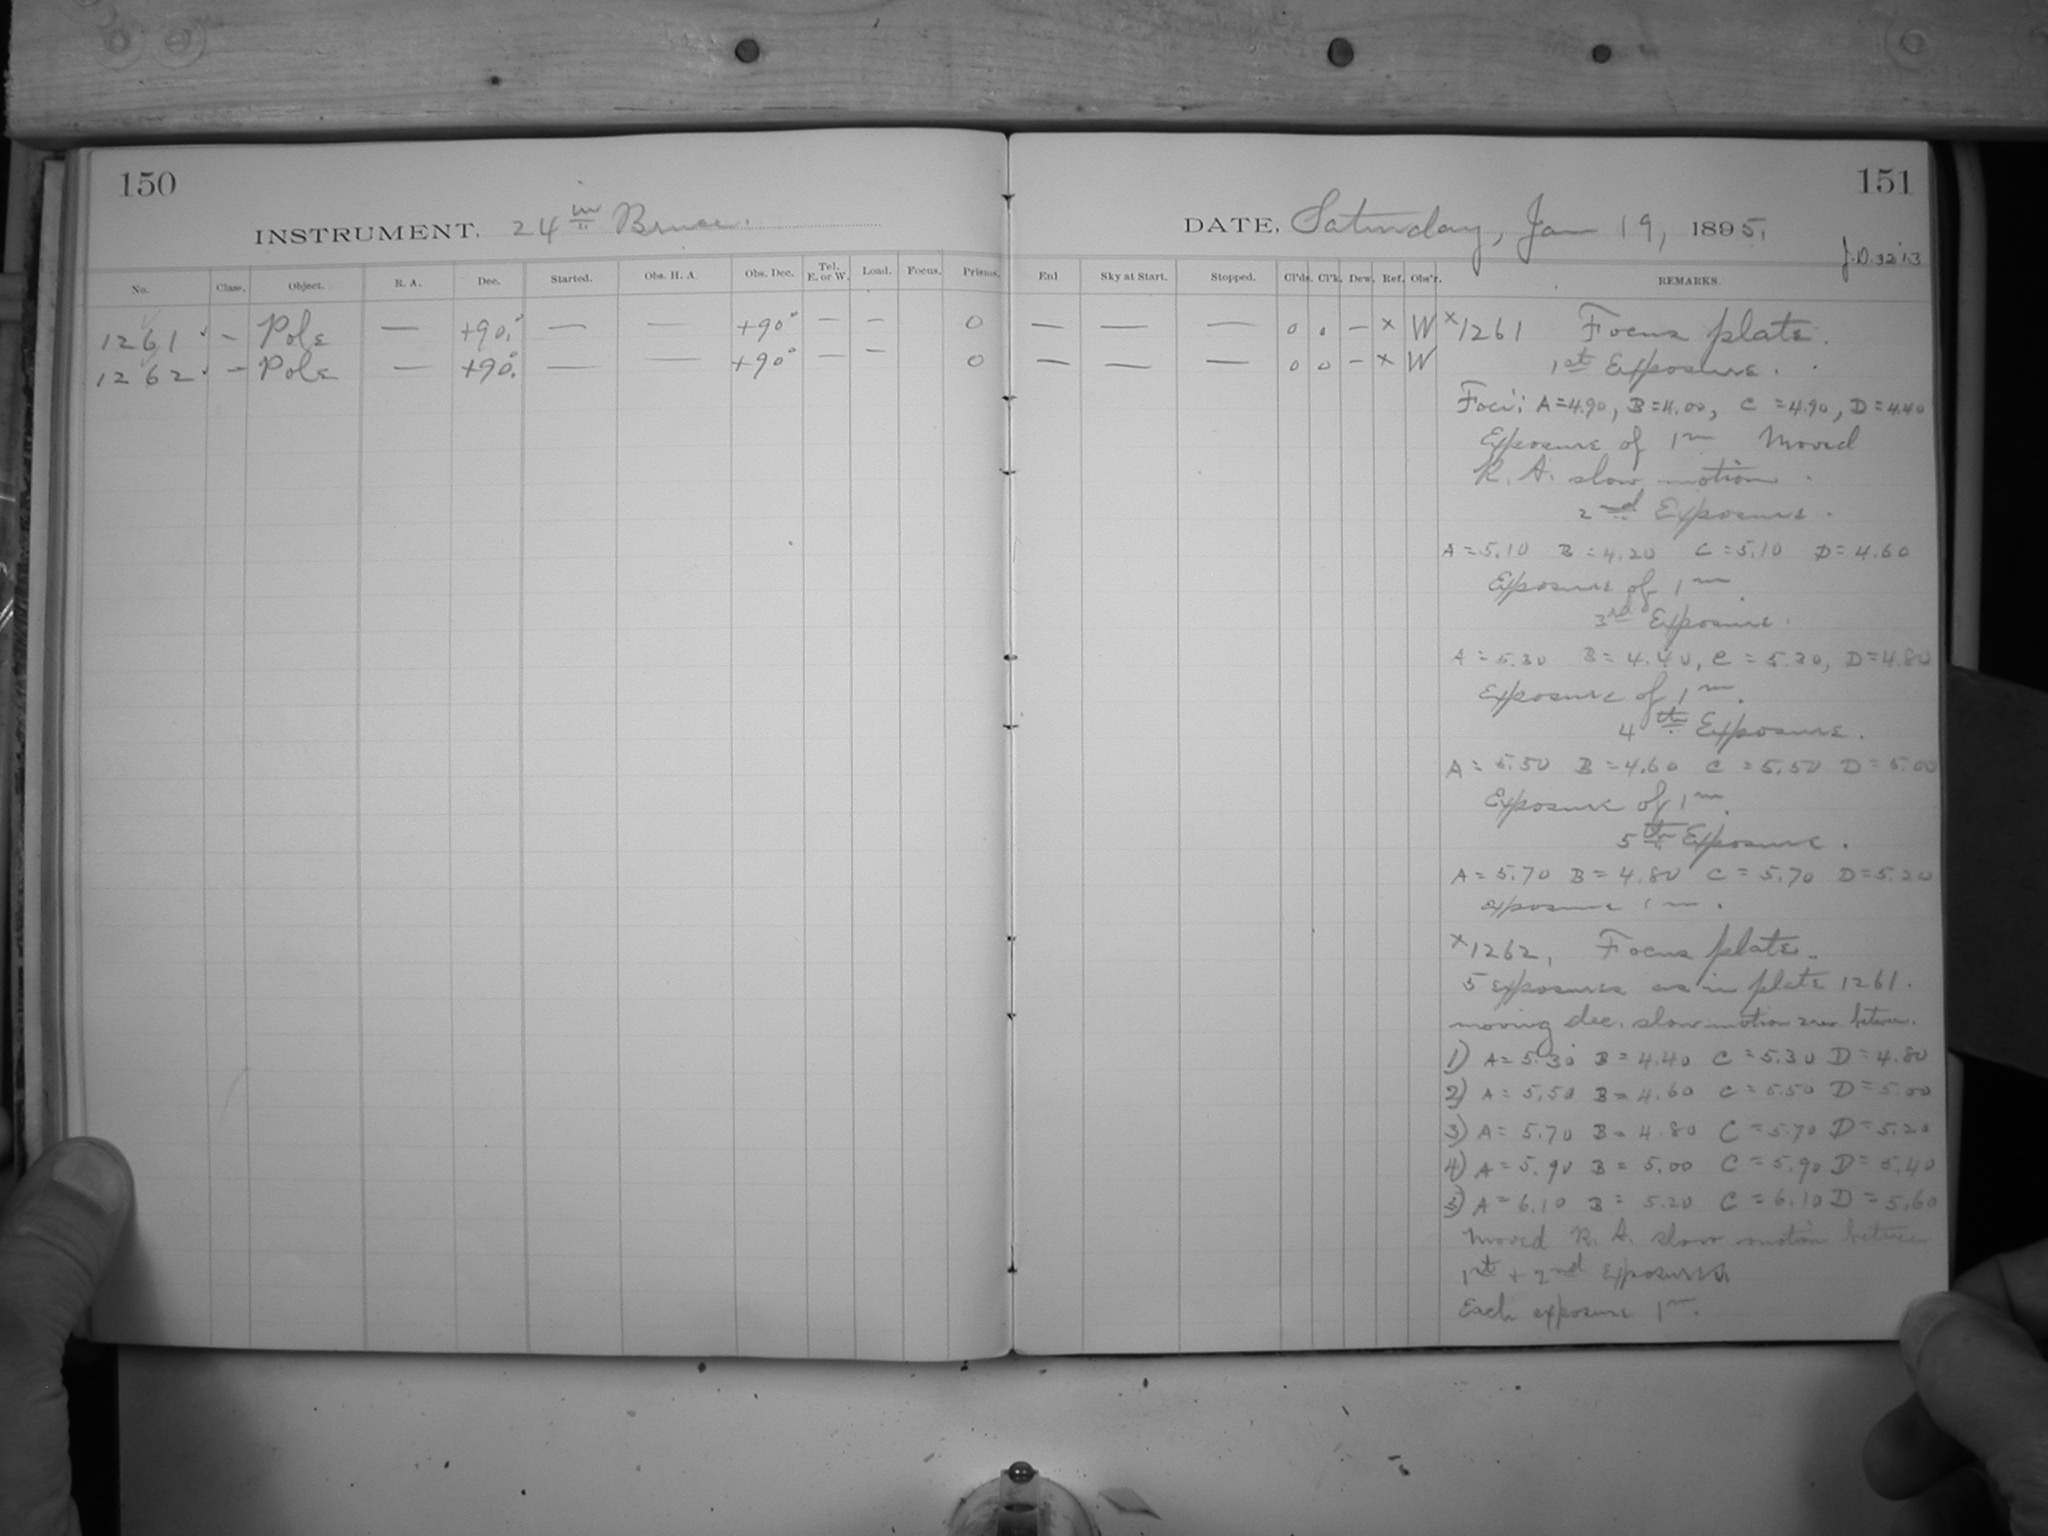 150
INSTRUMENT. 24 in Bruce.
No. Class. Object. R. A. Dec. Started. Obs. H. A. Obs. Dec. Tel. E. or W. Load. Focus. Prisms.
1261 - Pole — +90° — — +90° — — 0
1262 - Pole — +90° — — +90° — — 0
151
DATE, Saturday, Jan 19, 1895.
J.D. 3213
Enl Sky at Start. Stopped. Cl'ds. Cl'k. Dew. Ref. Obs'r. REMARKS.
— — — 0 0 — x W
— — — 0 0 — x W
x1261 Focus plate.
1st Exposure.
Foci: A=4.90, B=4.00, C=4.90, D=4.40
Exposure of 1m Moved
R. A. slow motion.
2nd Exposure.
A=5.10 B=4.20 C=5.10 D=4.60
Exposure of 1m
3rd Exposure.
A=5.30 B=4.40, C=5.30, D=4.80
Exposure of 1m.
4th Exposure.
A=5.50 B=4.60 C=5.50 D=5.00
Exposure of 1m.
5th Exposure.
A=5.70 B=4.80 C=5.70 D=5.20
exposure 1m.
x1262, Focus plate.
5 exposures as in plate 1261.
moving dec. slow motion between.
1) A=5.30 B=4.40 C=5.30 D=4.80
2) A=5.50 B=4.60 C=5.50 D=5.00
3) A=5.70 B=4.80 C=5.70 D=5.20
4) A=5.90 B=5.00 C=5.90 D=5.40
5) A=6.10 B=5.20 C=6.10 D=5.60
Moved R. A. slow motion between
1st + 2nd Exposures
Each exposure 1m.